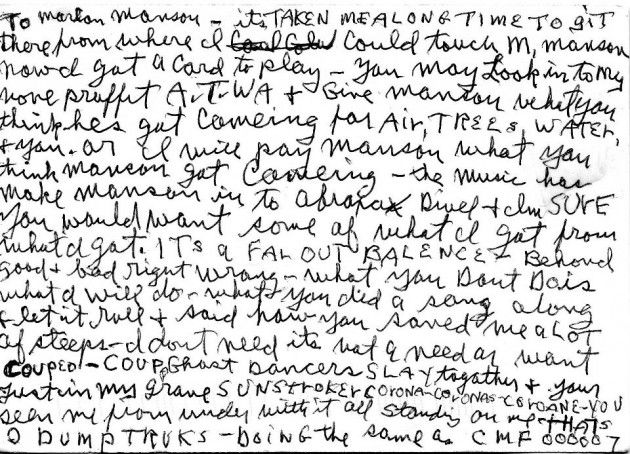 To marlon manson – its TAKEN ME A LONG TIME TO GIT
there from where I could touch M, manson
now I got a card to play – you may look into my
none proffit A.T.W.A + Give manson what you
think hes got comeing for Air, TREES, WATER,
+ you. or I will pay manson what you
think manson got comeing – the music has
make manson in to abraxas Divel + Im SURE
you would want some of what I got from
what I got. ITS a FAR OUT BALENCE – Behond
good + bad right wrong – what you Dont Do is
what I will do – what you did a song along
+ let it roll + said how you saved me a LOT
of steeps – I dont need it its not a need or want
COUPED – COUP. Ghost Dancers SLAY together + your
just in my grave SUNSTROKER CORONA – CORONAS – COROANE – YOU
seen me from under with it all standing on me THATS
2 DUMP TRUKS – DOING the same as CMF 000007